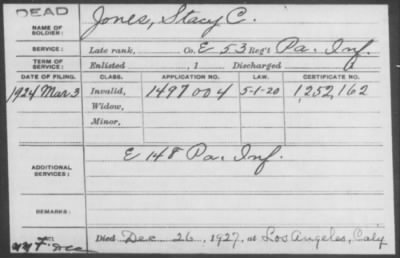 DEAD
NAME OF SOLDIER: Jones, Stacy C.
SERVICE: Late rank, Co. E 53 Reg't Pa. Inf.
TERM OF SERVICE: Enlisted , 1 Discharged
DATE OF FILING. CLASS. APPLICATION NO. LAW. CERTIFICATE NO.
1924 Mar 3 Invalid, 1497004 5-1-20 1,252,162
Widow,
Minor,
ADDITIONAL SERVICES: E 148 Pa. Inf.
REMARKS:
Died Dec 26, 1927, at Los Angeles, Caly